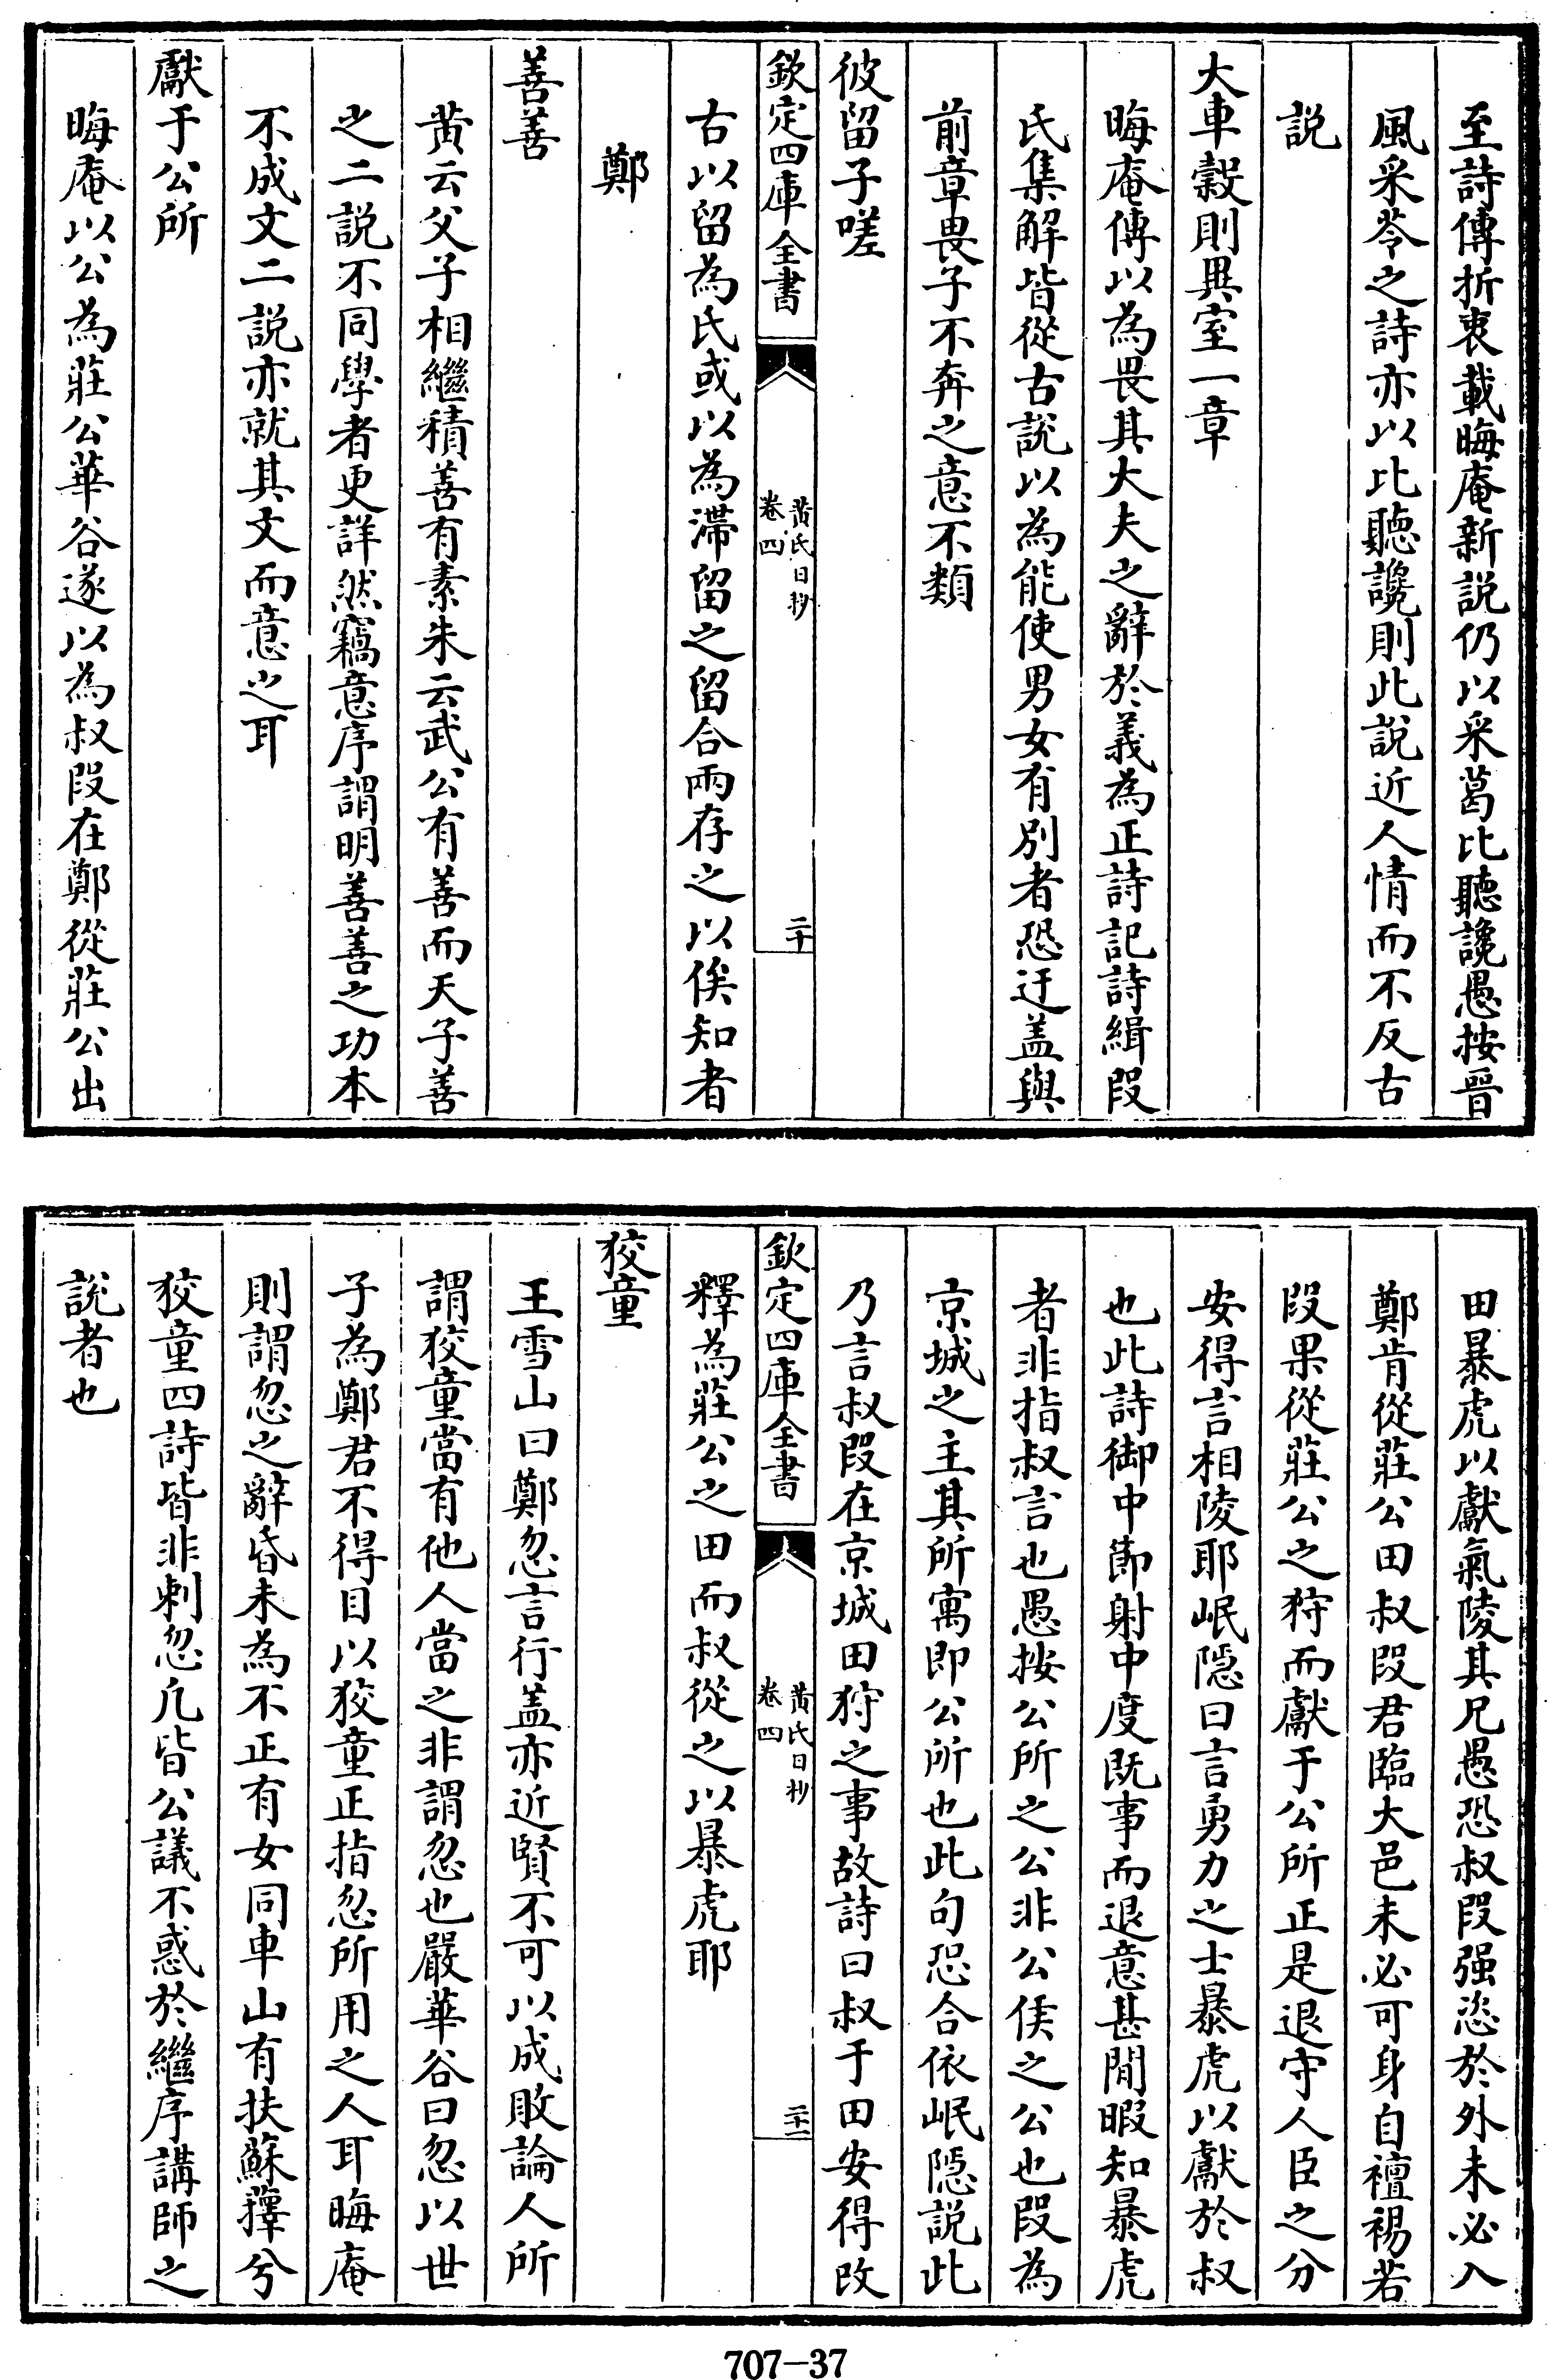 至詩傳折衷載晦庵新説仍以采葛比聽讒愚按晉
風采苓之詩亦以比聽讒則此説近人情而不反古
説
大車穀則異室一章
晦庵傳以為畏其大夫之辭於義為正詩記詩緝段
氏集解皆從古說以為能使男女有別者恐迂盖與
前章畏子不奔之意不類
彼留子嗟
欽定四庫全書
黄氏日抄
卷四
二十
古以留為氏或以為滯留之留合兩存之以俟知者
鄭
善善
黄云父子相繼積善有素朱云武公有善而天子善
之二説不同學者更詳然竊意序謂明善善之功本
不成文二説亦就其文而意之耳
獻于公所
晦庵以公為莊公華谷遂以為叔段在鄭從莊公出
田暴虎以獻氣陵其兄愚恐叔段强恣於外未必入
鄭肯從莊公田叔段君臨大邑未必可身自襢裼若
段果從莊公之狩而獻于公所正是退守人臣之分
安得言相陵耶岷隱曰言勇力之士暴虎以獻於叔
也此詩御中節射中度既事而退意甚閒暇知暴虎
者非指叔言也愚按公所之公非公侯之公也段為
京城之主其所寓即公所也此句恐合依岷隱説此
乃言叔段在京城田狩之事故詩曰叔于田安得改
欽定四庫全書
黄氏日抄
卷四
二十一
釋為莊公之田而叔從之以暴虎耶
狡童
王雪山曰鄭忽言行盖亦近賢不可以成敗論人所
謂狡童當有他人當之非謂忽也嚴華谷曰忽以世
子為鄭君不得目以狡童正指忽所用之人耳晦庵
則謂忽之辭昏未為不正有女同車山有扶蘇蘀兮
狡童四詩皆非刺忽凡皆公議不惑於繼序講師之
說者也
707-37